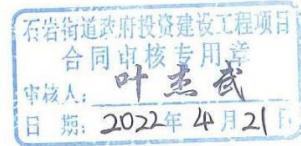 石岩街道政府投资建设工程项目
合同审核专用章
审核人：叶志武
日 期：2022年4月21日